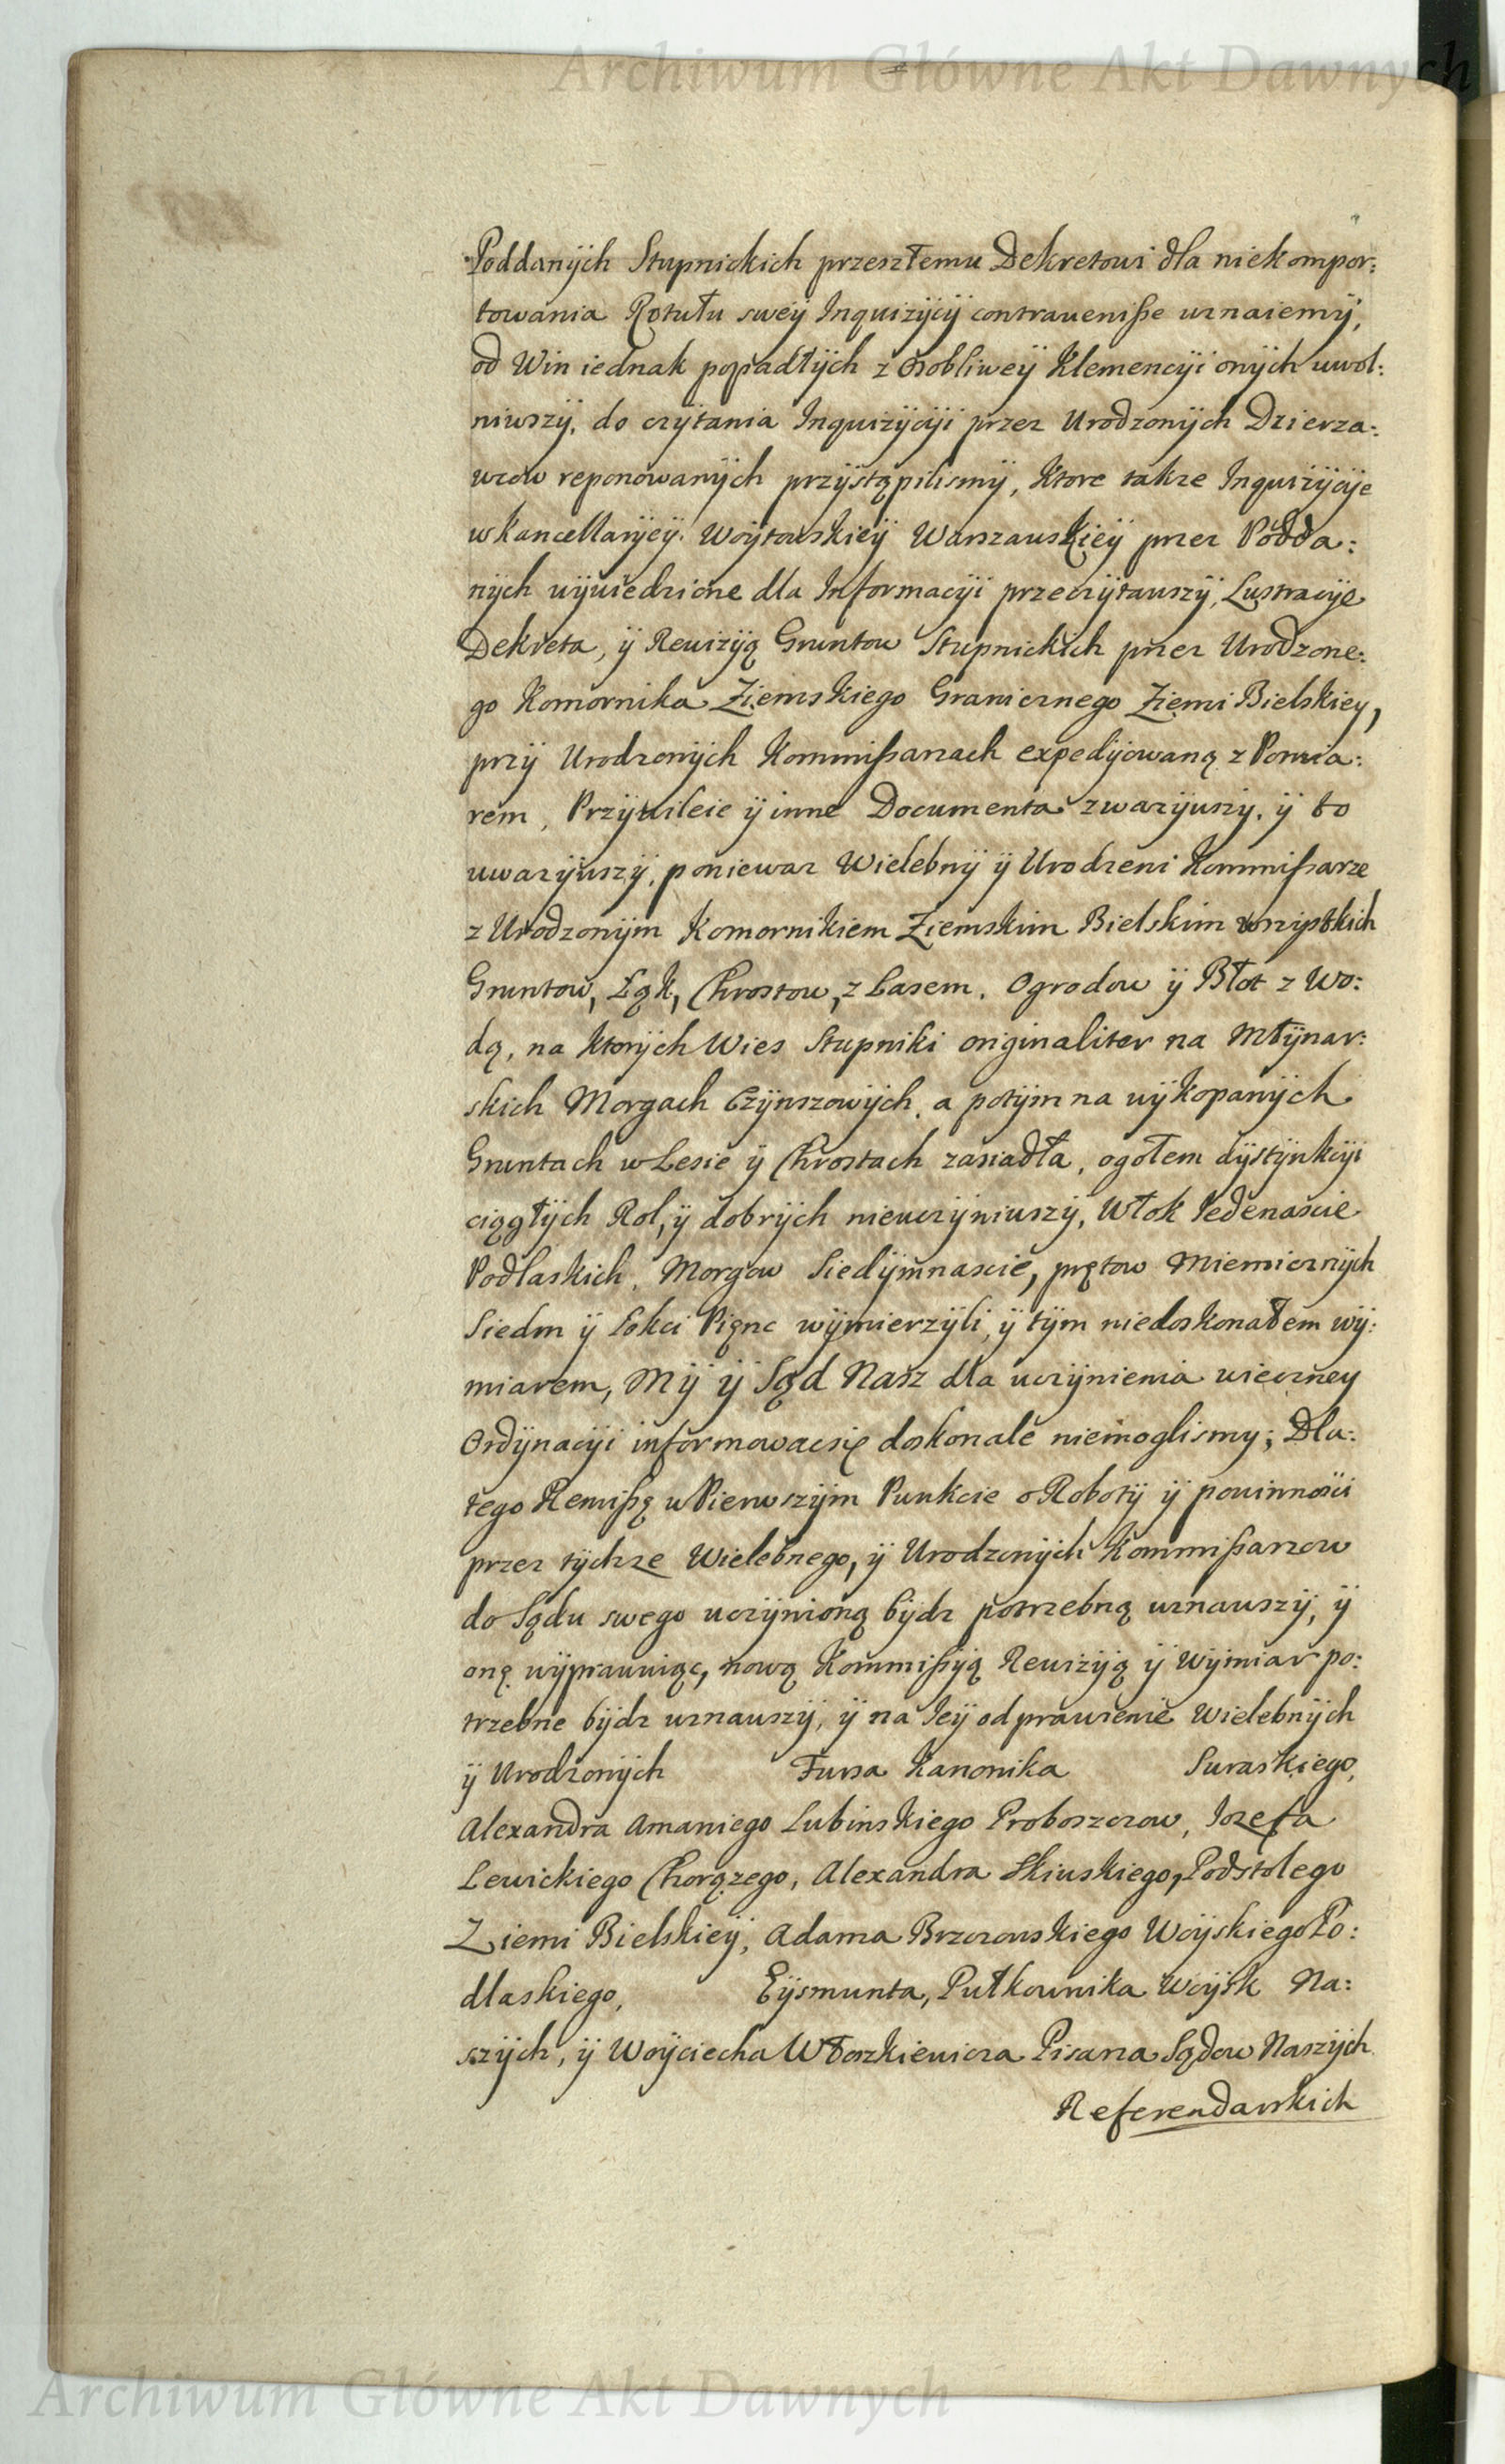 Archiwum Główne Akt Dawnych
Poddanÿch Stupnickich przeszłemu Dekretowi dla niekompor:
towania Rotułu sweÿ Inquizÿcÿi contravenisse uznaiemÿ,
od Win iednak popadłÿch z osobliweÿ Klemencÿi onÿch uwol:
niwszÿ, do czÿtania Inquizÿcÿi przez Urodzonÿch Dzierza:
wcow reponowanÿch przÿstąpilismÿ, Ktore takze Inquizÿcÿe
w Kancellarÿeÿ Woÿtowskieÿ Warszawskieÿ przez Podda:
nÿch wÿwiedzione dla Informacÿi przeczÿtawszÿ, Lustracÿe
Dekreta, ÿ Rewizÿą Gruntow Stupnickich przez Urodzone:
go Komornika Ziemskiego Granicznego Ziemi Bielskiey,
przÿ Urodzonÿch Kommissarzach expedÿowaną z Pomia:
rem, Przÿwileie ÿ inne Documenta zwazÿwszÿ, ÿ to
uwazÿwszÿ, poniewaz Wielebnÿ ÿ Urodzeni Kommissarze
z Urodzonÿm Komornikiem Ziemskim Bielskim wszÿstkich
Gruntow, Łąk, Chrostow, z Lasem, Ogrodow ÿ Błot z Wo:
dą, na ktorÿch Wies Stupniki originaliter na Młÿnar:
skich Morgach Czÿnszowÿch, a potÿm na wÿkopanÿch
Gruntach w Lesie ÿ Chrostach zasiadła, ogołem dÿstÿnkcÿi
ciągłÿch Rol, ÿ dobrÿch nieuczÿniwszÿ, Włok Jedenascie
Podlaskich, Morgow Siedÿmnascie, prętow Miernicznÿch
Siedm ÿ Łokci Piąnc wÿmierzÿli, ÿ tÿm niedoskonałem wÿ:
miarem, Mÿ ÿ Sąd Nasz dla uczÿnienia wieczney
Ordÿnacÿi informowacsię doskonale niemoglismy; Dla:
tego Remissą w Pierwszÿm Punkcie o Robotÿ ÿ powinności
przez tÿchze Wielebnego, ÿ Urodzonÿch Kommissarzow
do Sądu swego uczÿnioną bÿdz potrzebną uznawszÿ, ÿ
onę wÿprawuiąc, nową Kommissÿą Rewizÿą ÿ Wÿmiar po:
trzebne bÿdz uznawszÿ, ÿ na Jeÿ odprawienie Wielebnÿch
ÿ Urodzonÿch Fursa Kanonika Suraskiego,
Alexandra Amaniego Lubinskiego Proboszczow, Jozefa
Lewickiego Chorązego, Alexandra Skiwskiego, Podstolego
Ziemi Bielskieÿ, Adama Brzozowskiego Woÿskiego Po:
dlaskiego, Eÿsmunta, Pułkownika Woÿsk Na:
szÿch, ÿ Woÿciecha Włoszkiewicza Pisarza Sądow Naszÿch
Referendarskich
Archiwum Główne Akt Dawnych